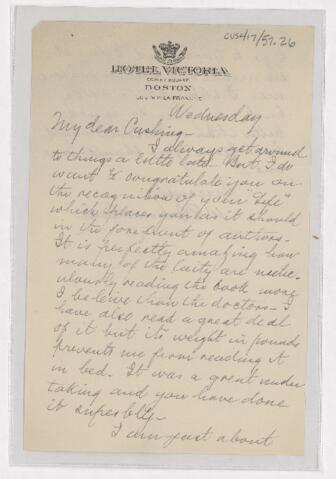 CUS417/57.26
HOTEL VICTORIA
COPLEY SQUARE
BOSTON
Wednesday
My dear Cushing-
I always get around
to things a little late. But I do
want to congratulate you on
the recognition of your "Life"
which places you as it should
in the foremost of authors-
It is perfectly amazing how
many of the laity are
reading the book more
I believe than the doctors- I
have also read a great deal
of it but its weight in pounds
prevents me from reading it
in bed. It was a great under
taking and you have done
it superbly-
I am just about